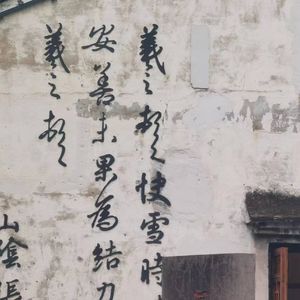 羲之頓首快雪時
安善未果為結力
羲之頓首
山陰張